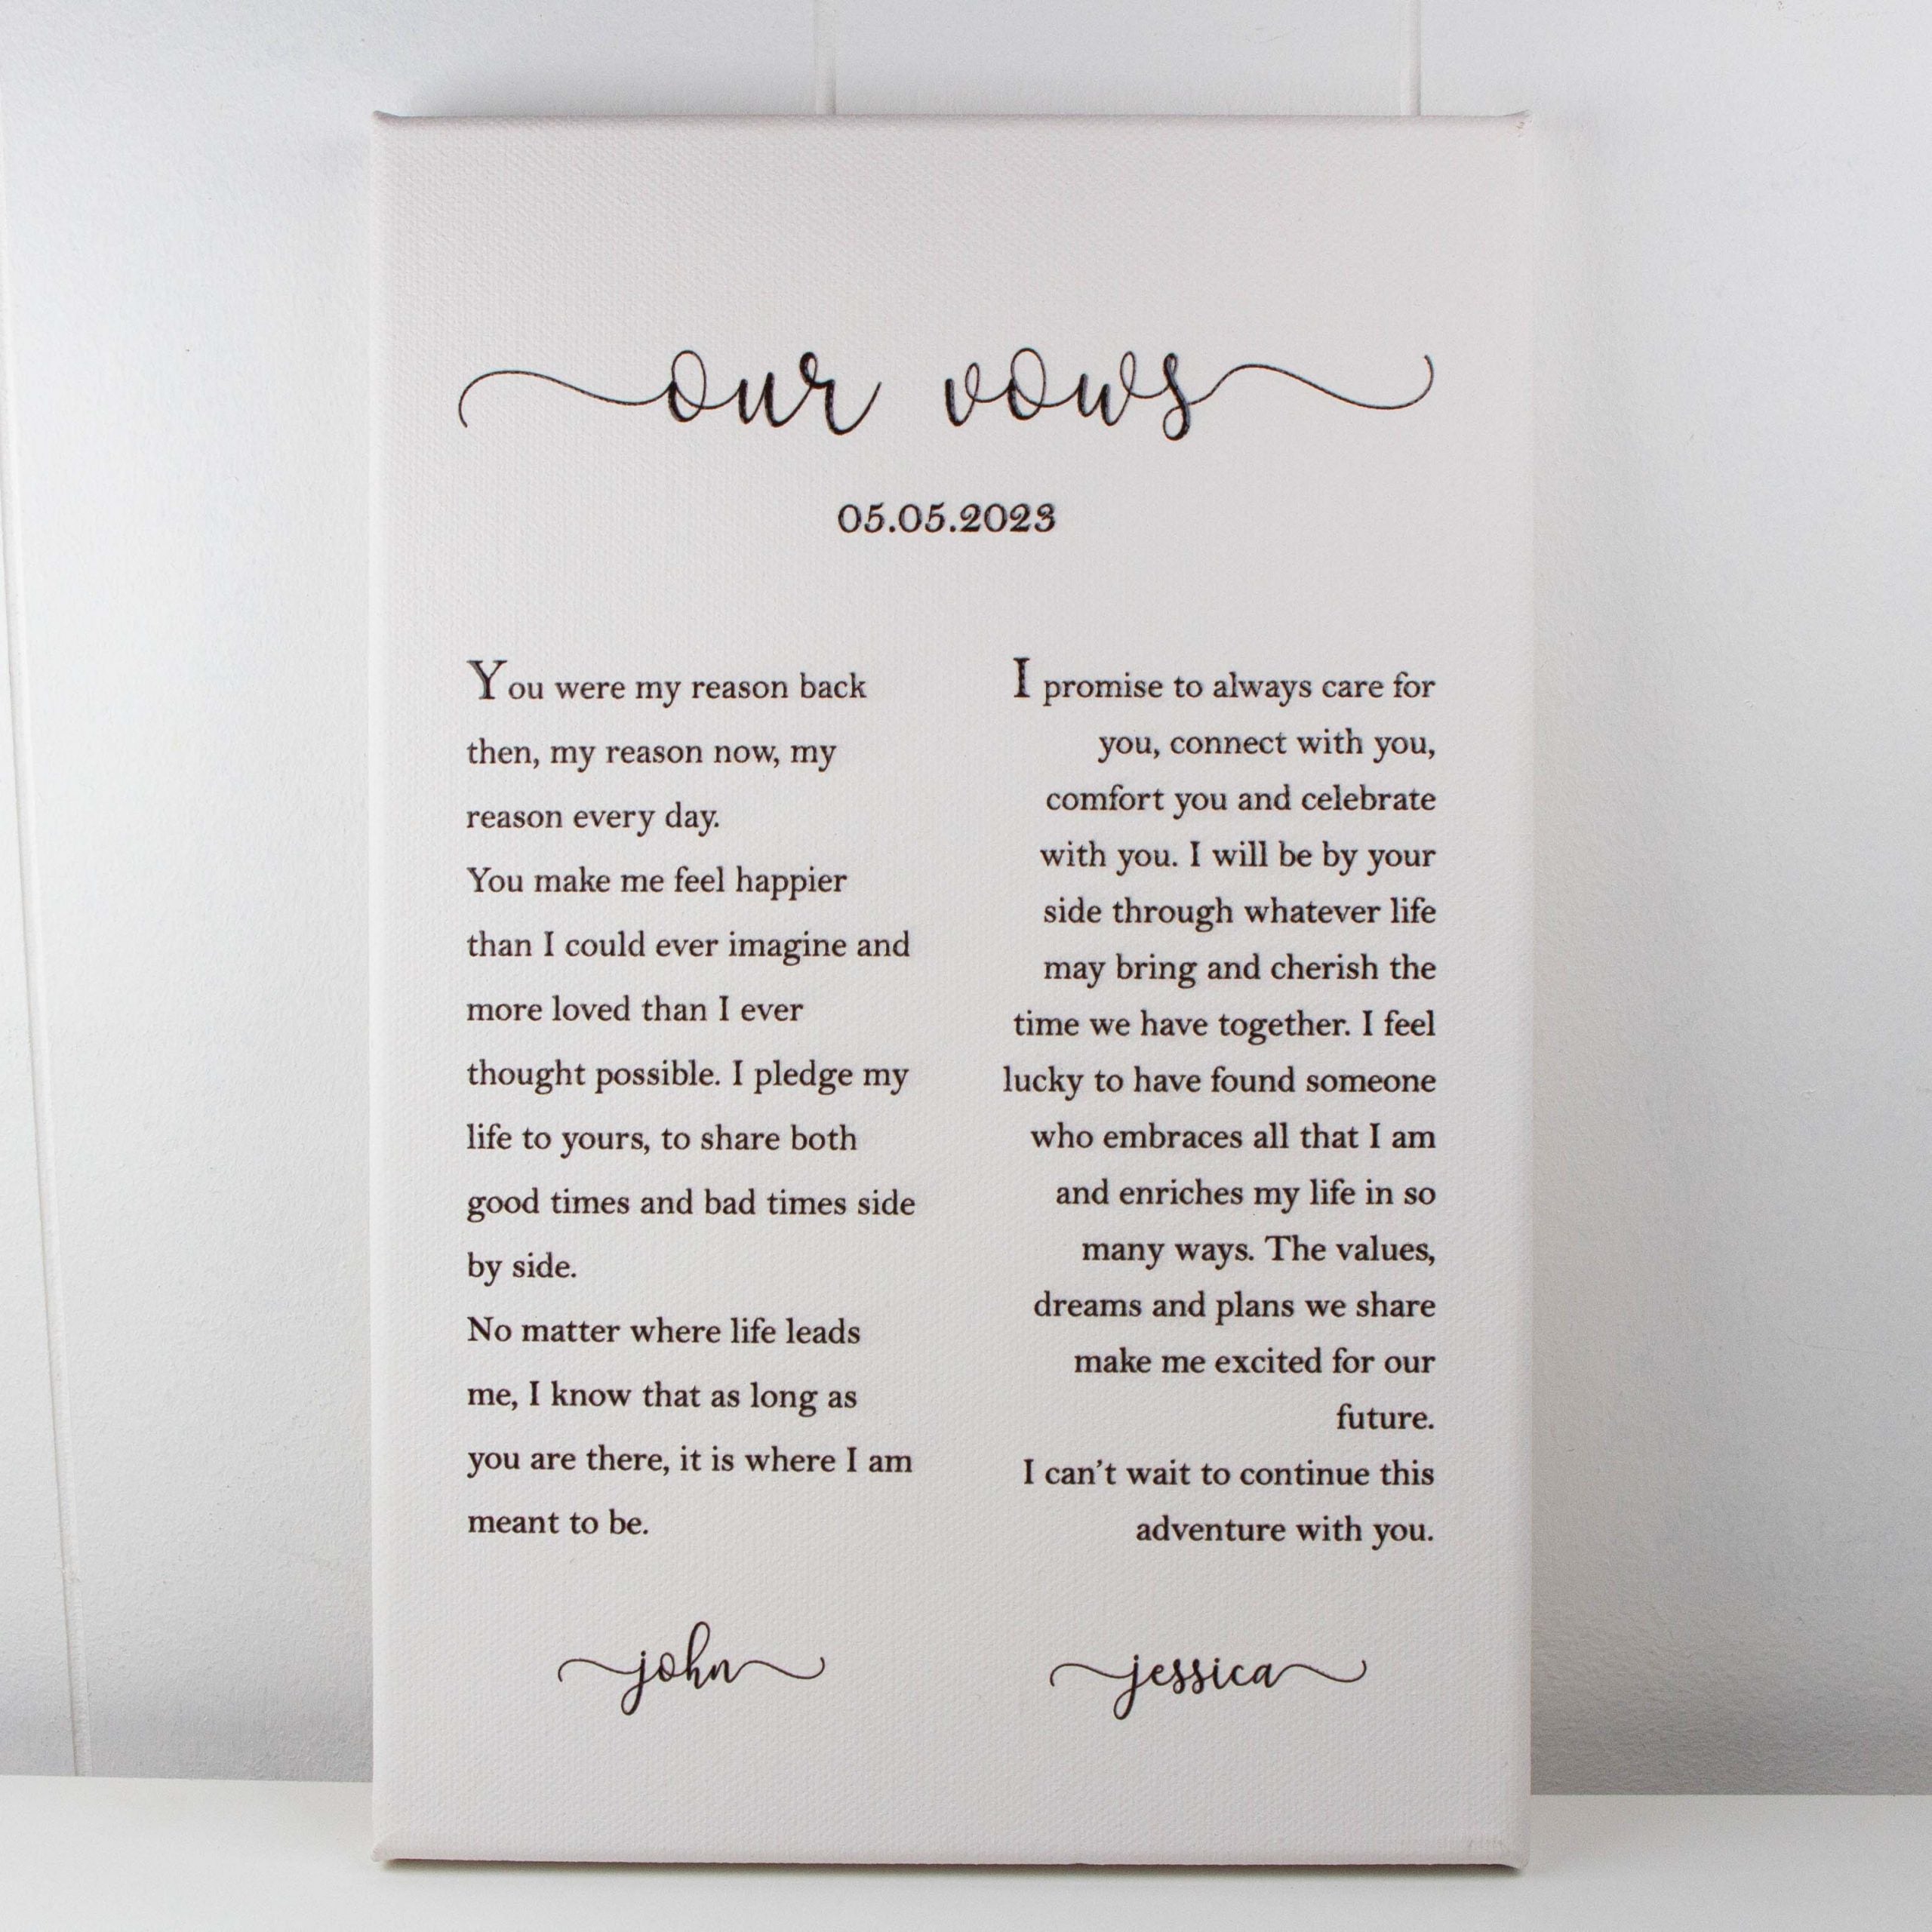 our vows
05.05.2023
You were my reason back
then, my reason now, my
reason every day.
You make me feel happier
than I could ever imagine and
more loved than I ever
thought possible. I pledge my
life to yours, to share both
good times and bad times side
by side.
No matter where life leads
me, I know that as long as
you are there, it is where I am
meant to be.
john
I promise to always care for
you, connect with you,
comfort you and celebrate
with you. I will be by your
side through whatever life
may bring and cherish the
time we have together. I feel
lucky to have found someone
who embraces all that I am
and enriches my life in so
many ways. The values,
dreams and plans we share
make me excited for our
future.
I can’t wait to continue this
adventure with you.
jessica